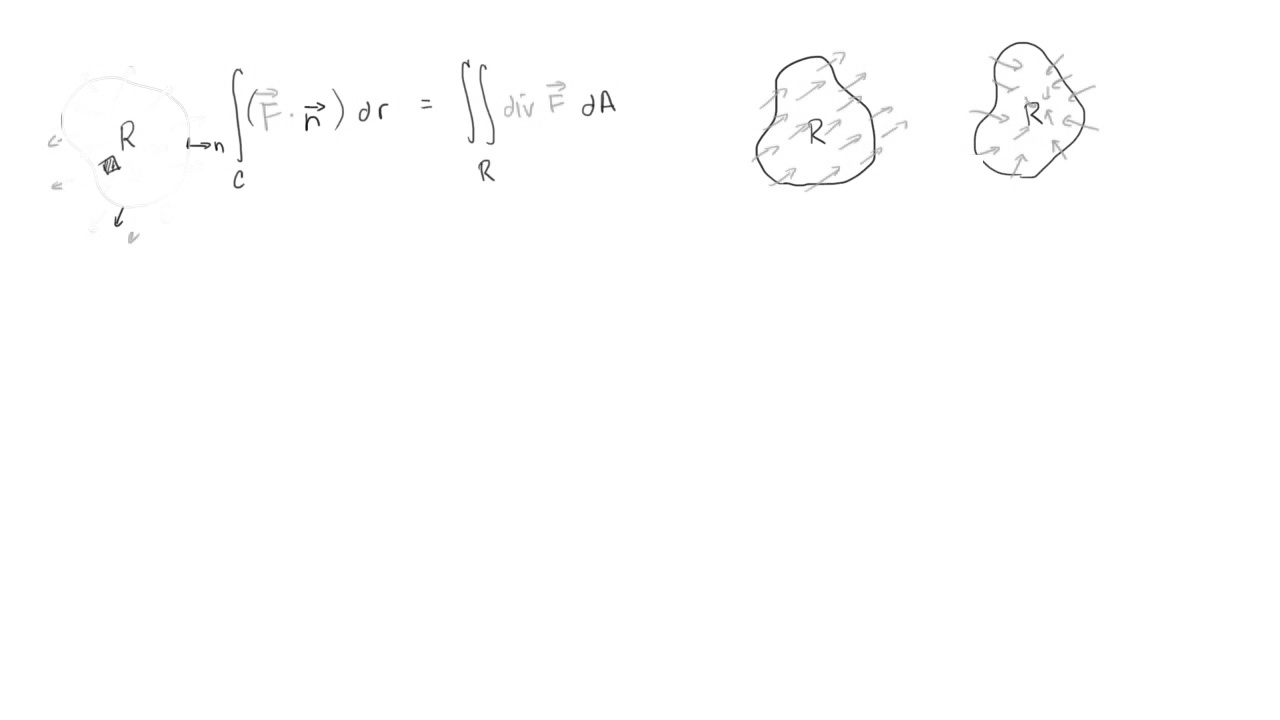 R → n ∫_C (F⃗ · n⃗) dr = ∬_R div F⃗ dA
R
R